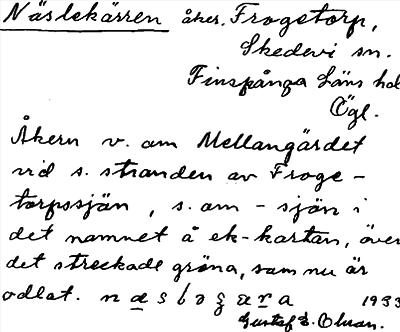 Näslekärren åker. Frogetorp,
Skedevi sn.
Finspånga läns hd
Ögl.
Åkern v. om Mellangärdet
vid s. stranden av Froge-
torpssjön, s. om - sjön i
det namnet å ek-kartan, över
det streckade gröna, som nu är
odlat. 1933
Gustaf E. Olsson.